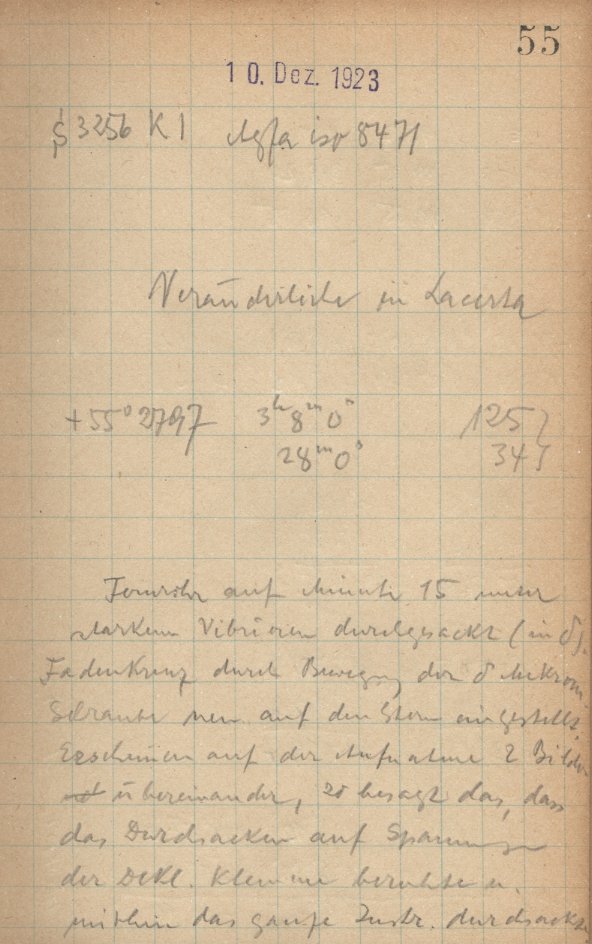 55
10. Dez. 1923
S 3256 K 1 Agfa iso 8471
Veränderliche in Lacerta
+55° 2797 3h 8m 0s 125 }
28m 0s 34 }
auf Minute 15 unter
starkem Vibrieren durchgesackt (in δ).
Fadenkreuz durch Bewegung der δ Mikrom.
Schraube neu auf den Stern eingestellt.
Erscheinen auf der Aufnahme 2 Bilder
übereinander, so besagt das, dass
das Durchsacken auf Spannung
der Dekl. Klemme beruhte u.
mithin das ganze Instr. durchsackte